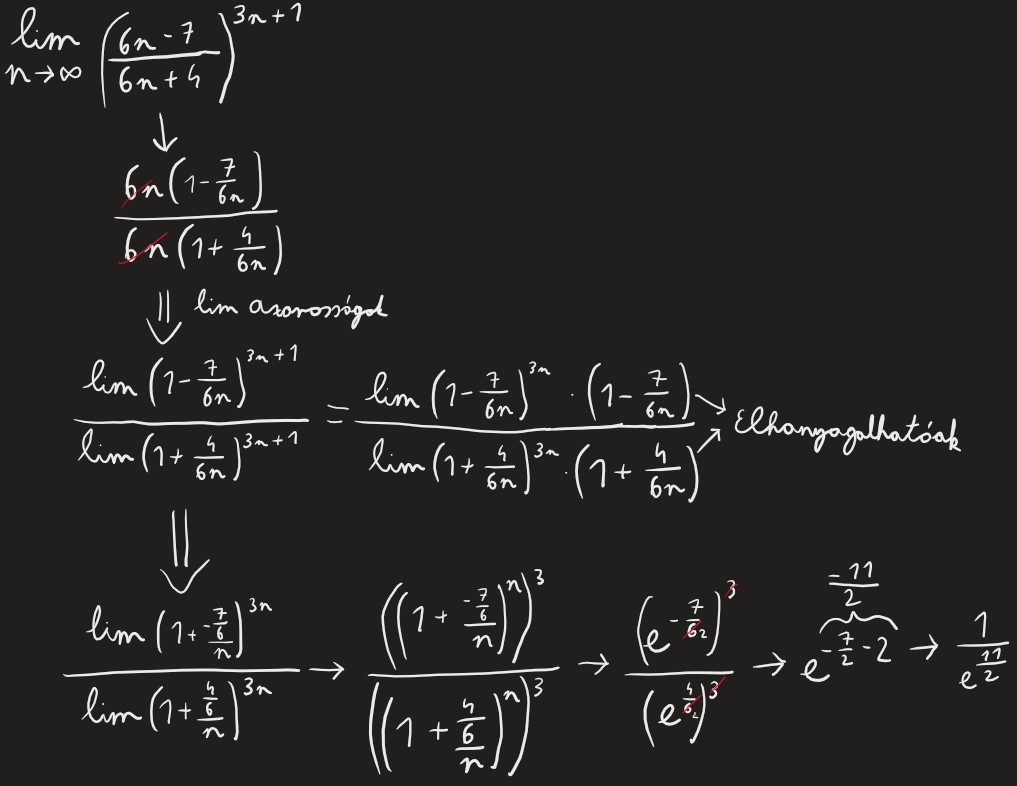 lim n→∞ ((6n - 7)/(6n + 4))^(3n + 1)
↓
6n(1 - 7/(6n)) / 6n(1 + 4/(6n))
⇓ lim azonosságok
lim (1 - 7/(6n))^(3n + 1) / lim (1 + 4/(6n))^(3n + 1) = lim (1 - 7/(6n))^(3n) · (1 - 7/(6n)) / lim (1 + 4/(6n))^(3n) · (1 + 4/(6n)) → Elhanyagolhatóak
⇓
lim (1 + (-7/6)/n)^(3n) / lim (1 + (4/6)/n)^(3n) → ((1 + (-7/6)/n)^n)^3 / ((1 + (4/6)/n)^n)^3 → (e^(-7/6 2))^3 / (e^(4/6 2))^3 → e^(-7/2 - 2) = -11/2 → 1/e^(11/2)